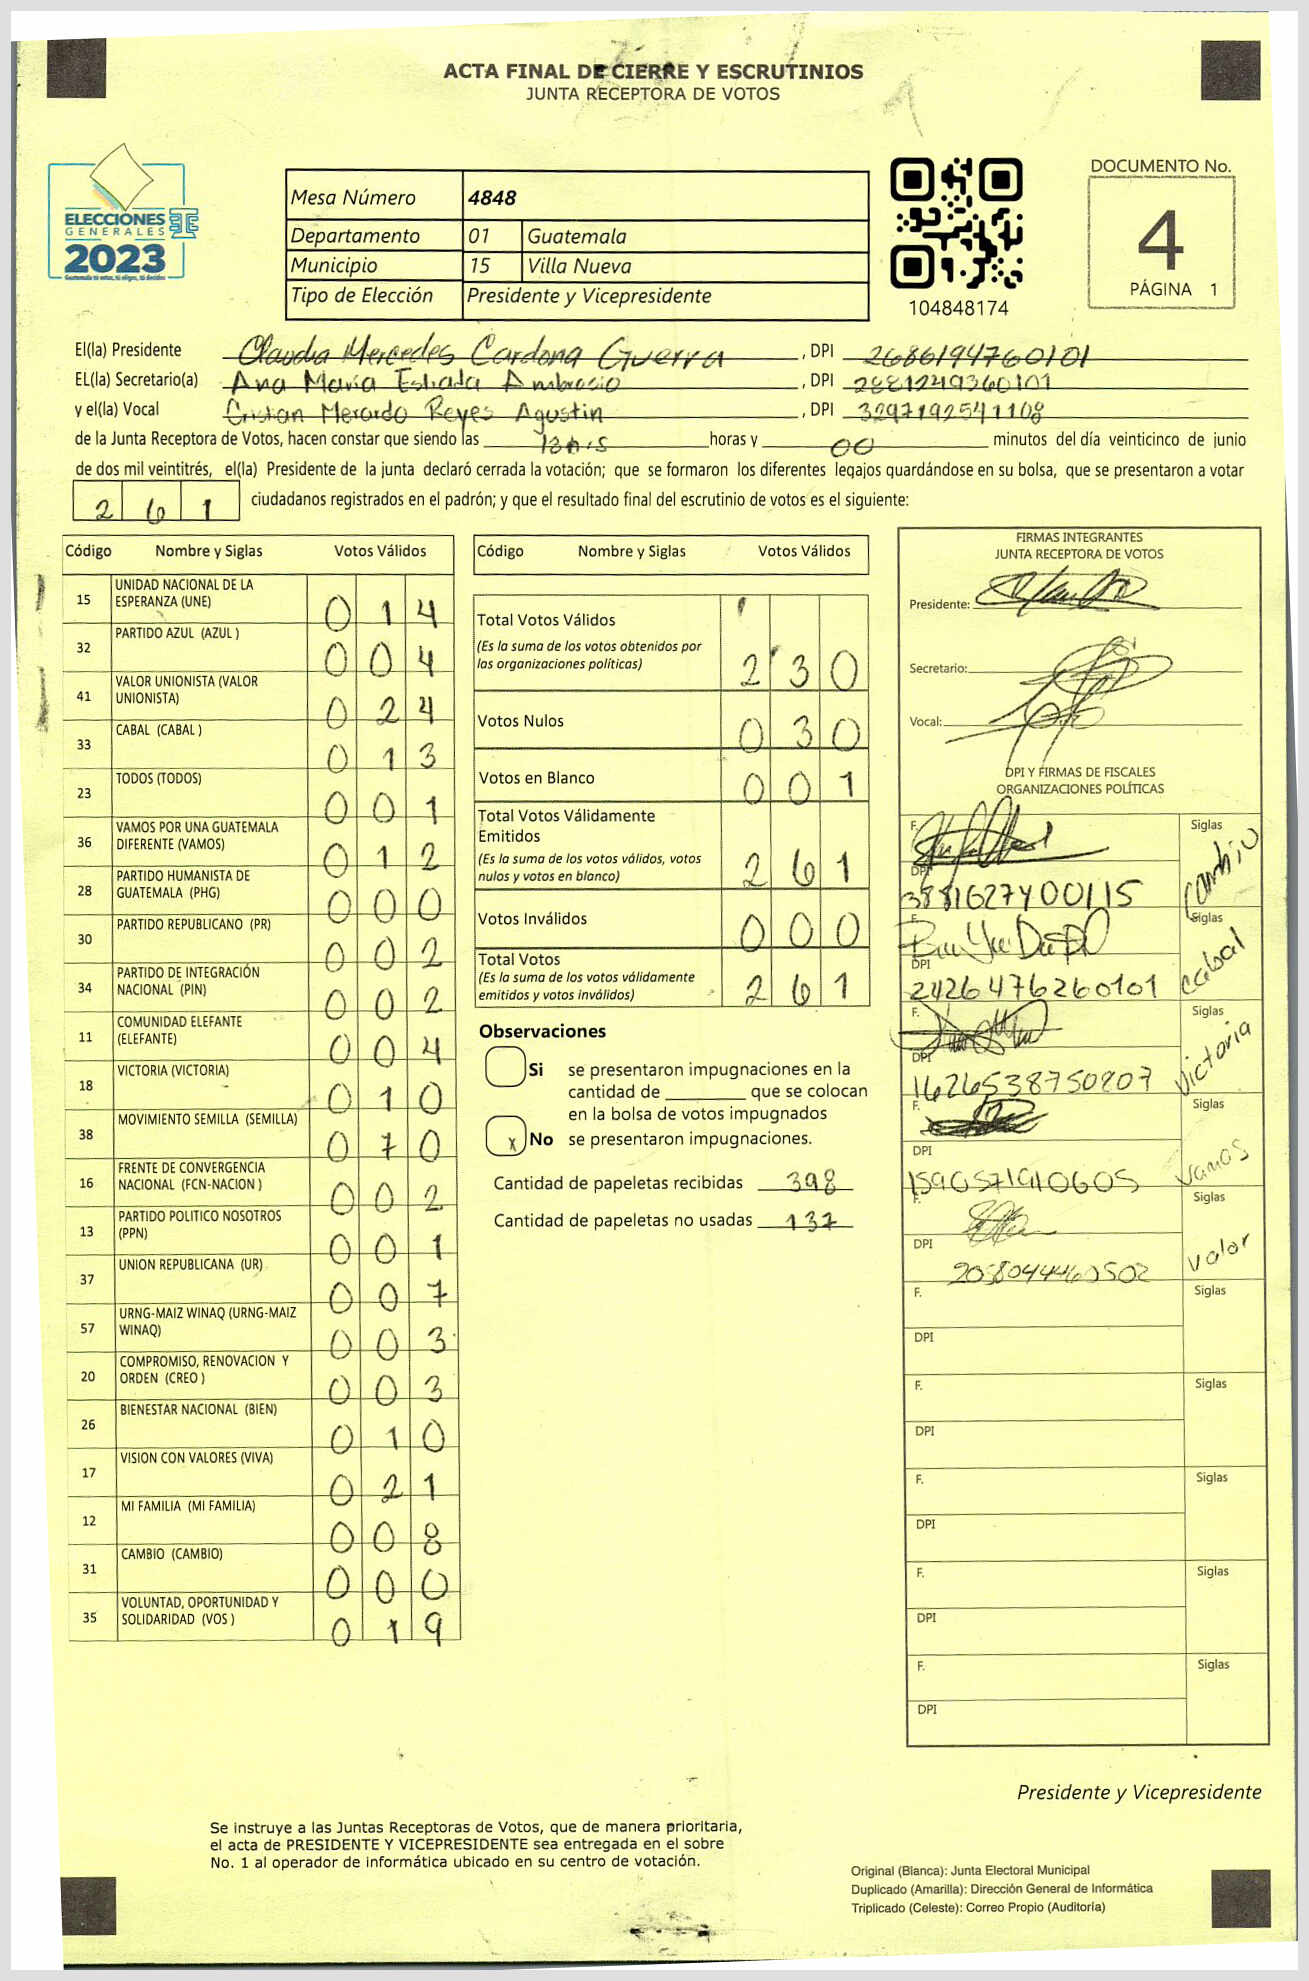 ACTA FINAL DE CIERRE Y ESCRUTINIOS
JUNTA RECEPTORA DE VOTOS
ELECCIONES
GENERALES
2023
Guatemala tú votas, tú eliges, tú decides
Mesa Número 4848
Departamento 01 Guatemala
Municipio 15 Villa Nueva
Tipo de Elección Presidente y Vicepresidente
104848174
DOCUMENTO No.
4
PÁGINA 1
El(la) Presidente Claudia Mercedes Cardona Guerra, DPI 2686194760101
EL(la) Secretario(a) Ana María Estrada Ambrosio, DPI 2881249360101
y el(la) Vocal Cristian Merardo Reyes Agustin, DPI 3297192541108
de la Junta Receptora de Votos, hacen constar que siendo las horas y 00 minutos del día veinticinco de junio
de dos mil veintitrés, el(la) Presidente de la junta declaró cerrada la votación; que se formaron los diferentes legajos guardándose en su bolsa, que se presentaron a votar
261 ciudadanos registrados en el padrón; y que el resultado final del escrutinio de votos es el siguiente:
Código Nombre y Siglas Votos Válidos
15 UNIDAD NACIONAL DE LA ESPERANZA (UNE) 014
32 PARTIDO AZUL (AZUL ) 004
41 VALOR UNIONISTA (VALOR UNIONISTA) 024
33 CABAL (CABAL ) 013
23 TODOS (TODOS) 001
36 VAMOS POR UNA GUATEMALA DIFERENTE (VAMOS) 012
28 PARTIDO HUMANISTA DE GUATEMALA (PHG) 000
30 PARTIDO REPUBLICANO (PR) 002
34 PARTIDO DE INTEGRACIÓN NACIONAL (PIN) 002
11 COMUNIDAD ELEFANTE (ELEFANTE) 004
18 VICTORIA (VICTORIA) 010
38 MOVIMIENTO SEMILLA (SEMILLA) 070
16 FRENTE DE CONVERGENCIA NACIONAL (FCN-NACION ) 002
13 PARTIDO POLITICO NOSOTROS (PPN) 001
37 UNION REPUBLICANA (UR) 007
57 URNG-MAIZ WINAQ (URNG-MAIZ WINAQ) 003
20 COMPROMISO, RENOVACION Y ORDEN (CREO ) 003
26 BIENESTAR NACIONAL (BIEN) 010
17 VISION CON VALORES (VIVA) 021
12 MI FAMILIA (MI FAMILIA) 008
31 CAMBIO (CAMBIO) 000
35 VOLUNTAD, OPORTUNIDAD Y SOLIDARIDAD (VOS ) 019
Código Nombre y Siglas Votos Válidos
Total Votos Válidos 230
(Es la suma de los votos obtenidos por
las organizaciones políticas)
Votos Nulos 030
Votos en Blanco 001
Total Votos Válidamente
Emitidos 261
(Es la suma de los votos válidos, votos
nulos y votos en blanco)
Votos Inválidos 000
Total Votos 261
(Es la suma de los votos válidamente
emitidos y votos inválidos)
Observaciones
Si se presentaron impugnaciones en la
cantidad de ________ que se colocan
en la bolsa de votos impugnados
x No se presentaron impugnaciones.
Cantidad de papeletas recibidas 398
Cantidad de papeletas no usadas 137
FIRMAS INTEGRANTES
JUNTA RECEPTORA DE VOTOS
Presidente:
Secretario:
Vocal:
DPI Y FIRMAS DE FISCALES
ORGANIZACIONES POLÍTICAS
F. Siglas cambio
DPI 3881627400115
F. Siglas cabal
DPI 2426476260101
F. Siglas victoria
DPI 1626538750207
F. Siglas vamos
DPI 1590571910605
F. Siglas valor
DPI 2058044460502
F. Siglas
DPI
F. Siglas
DPI
F. Siglas
DPI
F. Siglas
DPI
F. Siglas
DPI
Presidente y Vicepresidente
Se instruye a las Juntas Receptoras de Votos, que de manera prioritaria,
el acta de PRESIDENTE Y VICEPRESIDENTE sea entregada en el sobre
No. 1 al operador de informática ubicado en su centro de votación.
Original (Blanca): Junta Electoral Municipal
Duplicado (Amarilla): Dirección General de Informática
Triplicado (Celeste): Correo Propio (Auditoría)